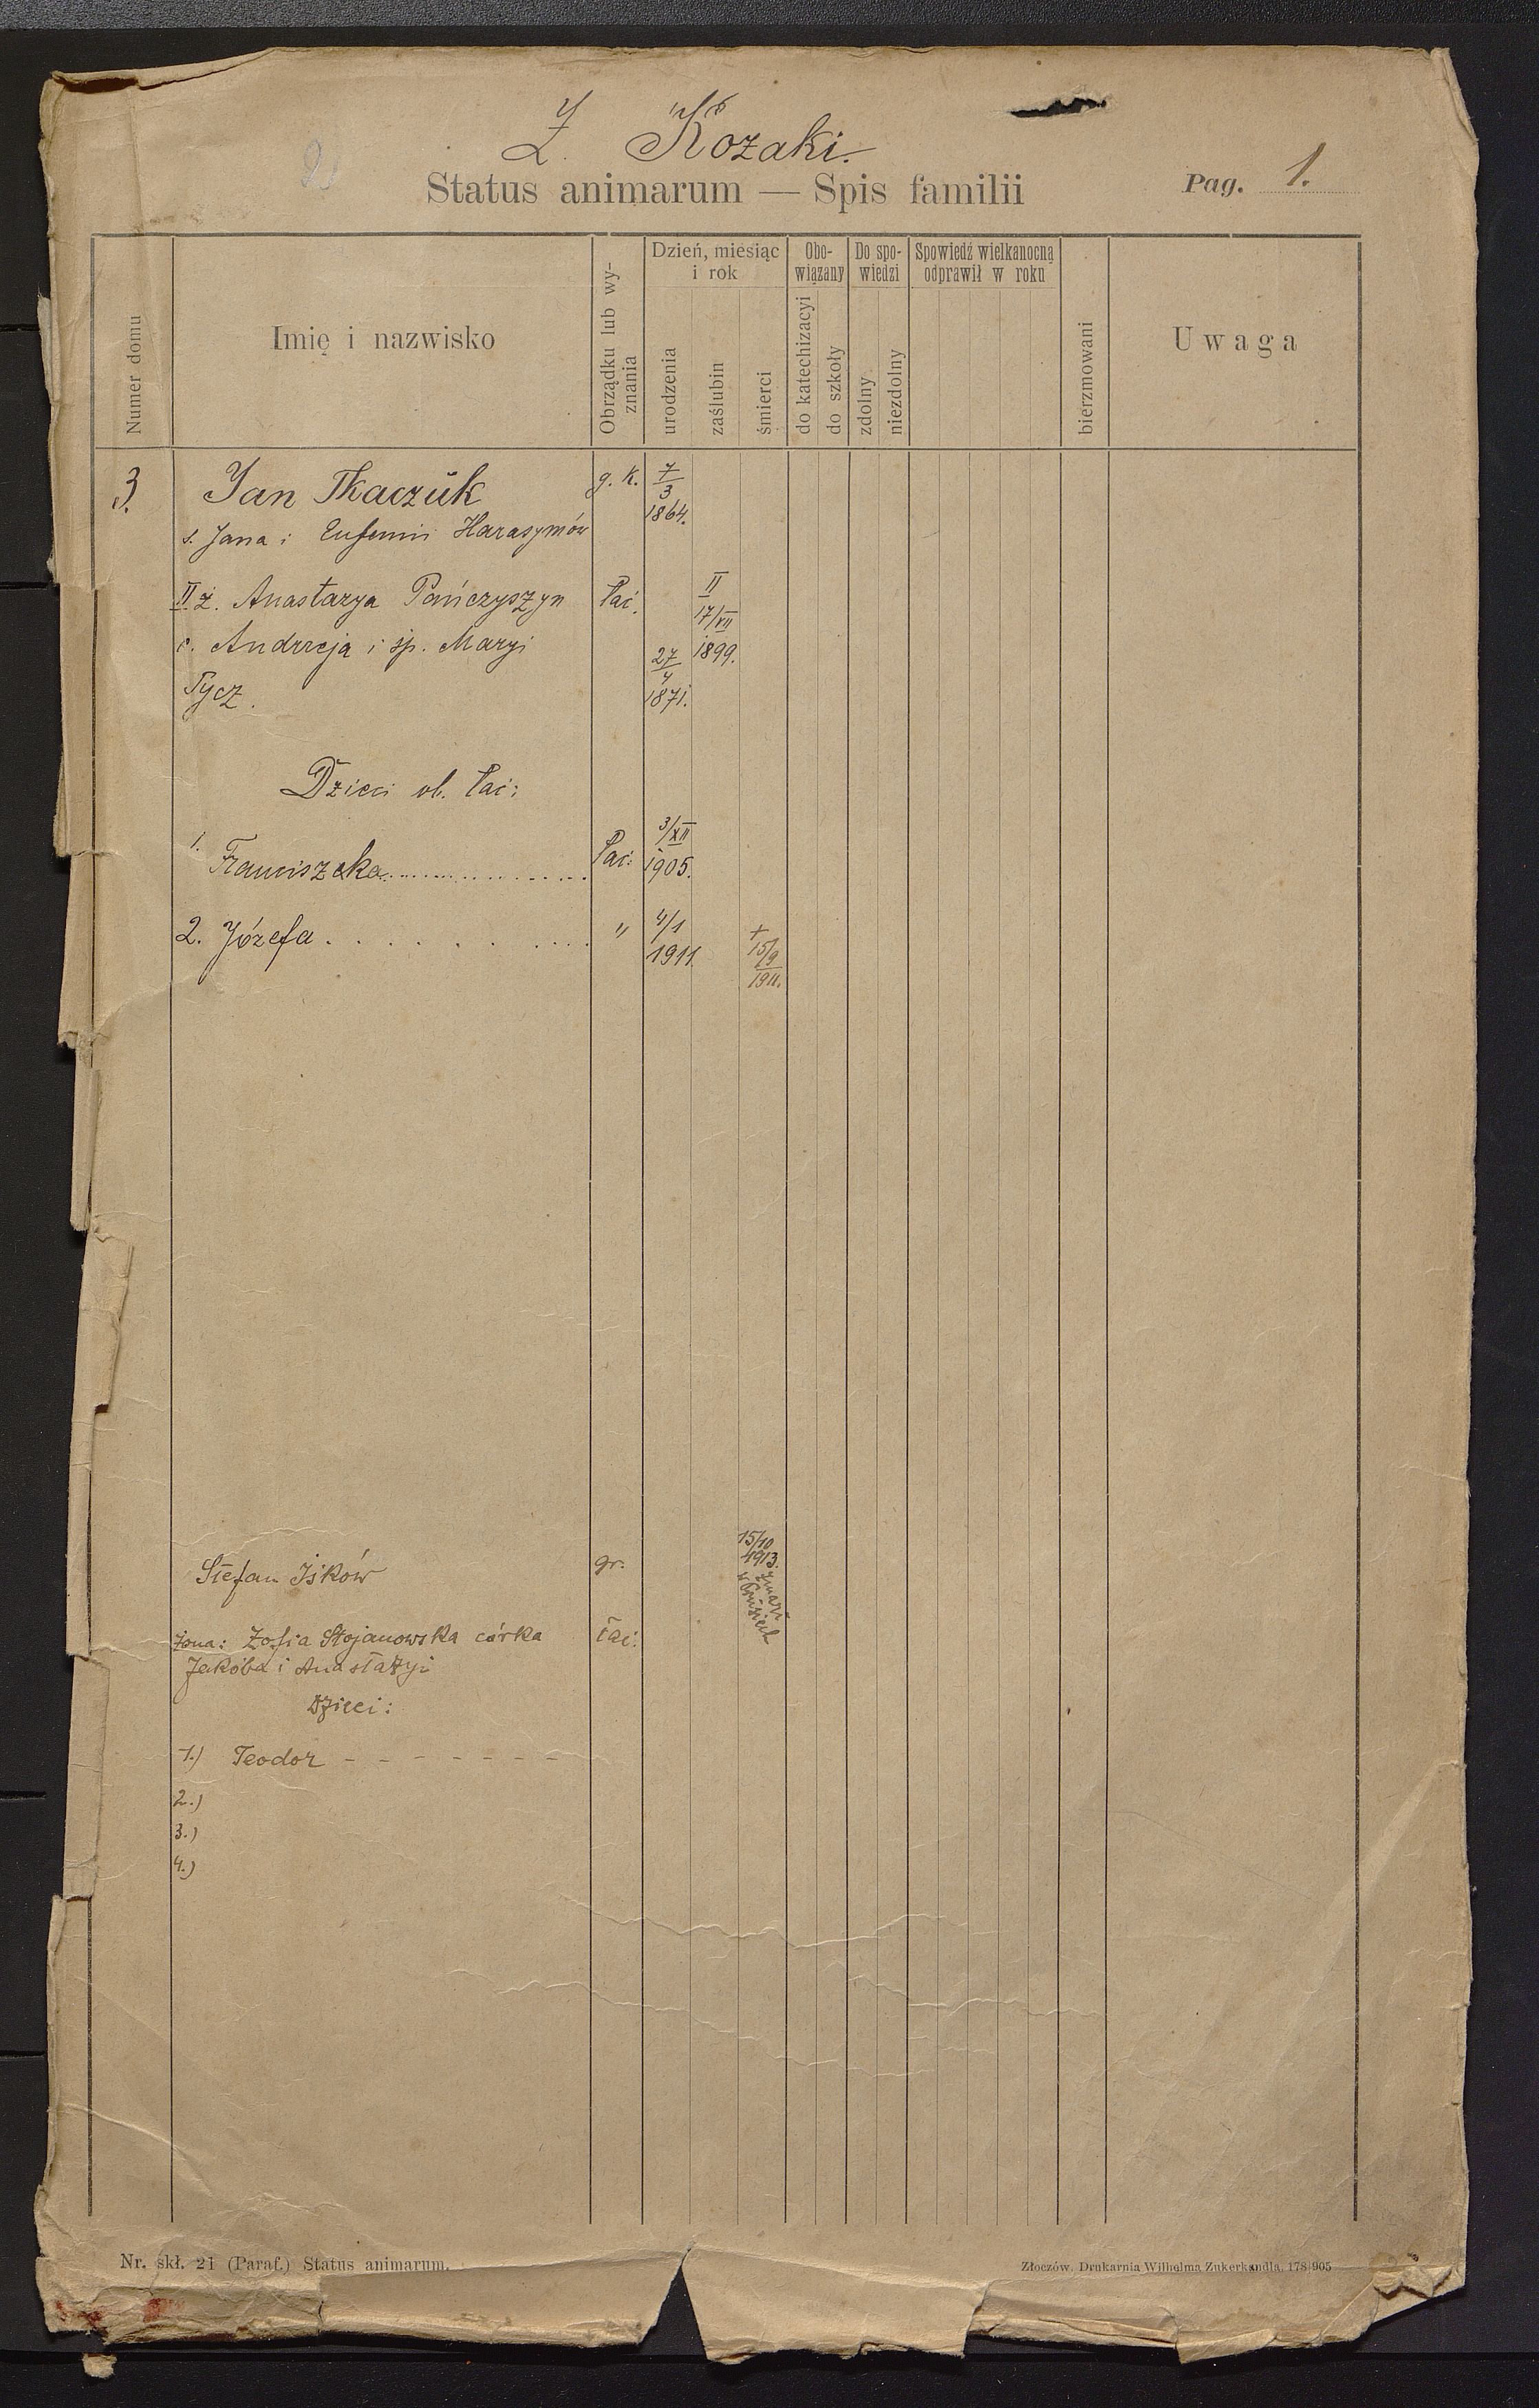 2
Z. Kozaki.
Status animarum — Spis familii
Pag. 1.
Numer domu
Imię i nazwisko
Obrządku lub wyznania
Dzień, miesiąc i rok
urodzenia
zaślubin
śmierci
Obowiązany
do katechizacyi
do szkoły
Do spowiedzi
zdolny
niezdolny
Spowiedź wielkanocną odprawił w roku
bierzmowani
Uwaga
3. Jan Tkaczuk g. k. 7/3 1864.
s. Jana i Eufemii Harasymów
II ż. Anastazya Pańczyszyn łać. II 17/XII 1899.
c. Andrzeja i śp. Maryi 27/4 1871.
Tycz.
Dzieci ob. łać:
1. Franciszka łać: 3/XII 1905.
2. Józefa . . . . . . . . . . " 4/1 1911 + 15/9 1911.
Stefan Iśków gr. 15/10 1913. zmarł w
żona: Zofia Stojanowska córka łać:
Jakóba i Anastazyi
Dzieci:
1.) Teodor - - - - - - -
2.)
3.)
4.)
Nr. skł. 21 (Paraf.) Status animarum.
Złoczów. Drukarnia Wilhelma Zukerkandla. 178/905